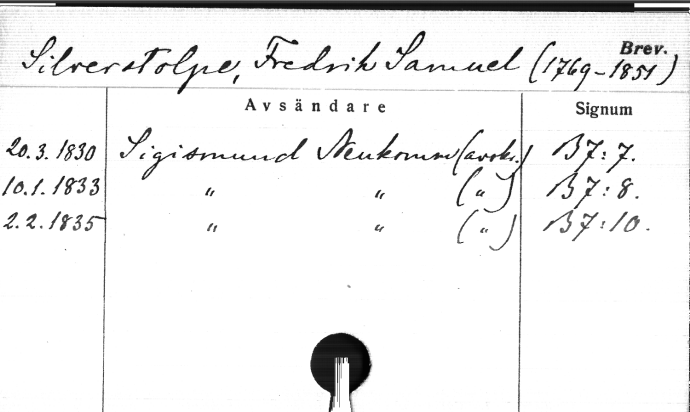 Brev.
Silverstolpe, Fredrik Samuel (1769-1851)
Avsändare Signum
20.3.1830 Sigismund Neukomm (avskr.) B7:7.
10.1.1833 " " (") B7:8.
2.2.1835 " " (") B7:10.